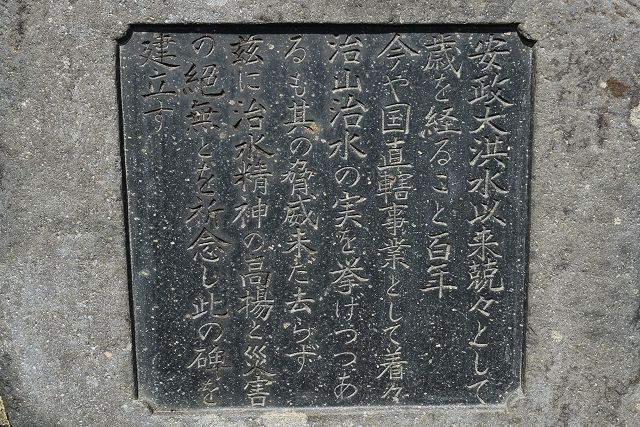 安政大洪水以来兢々として
歳を経ること百年
今や国直轄事業として着々
治山治水の実を挙げつつあ
るも其の脅威未だ去らず
茲に治水精神の高揚と災害
の絕無とを祈念し此の碑を
建立す